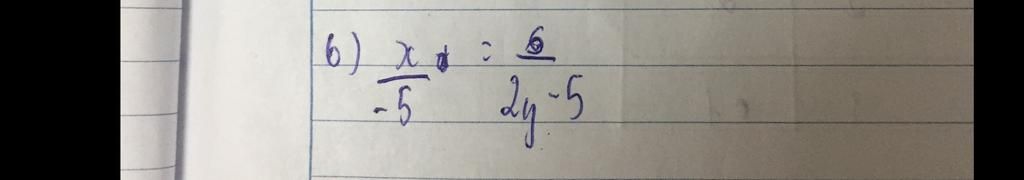 6) x/-5 = 6/2y-5